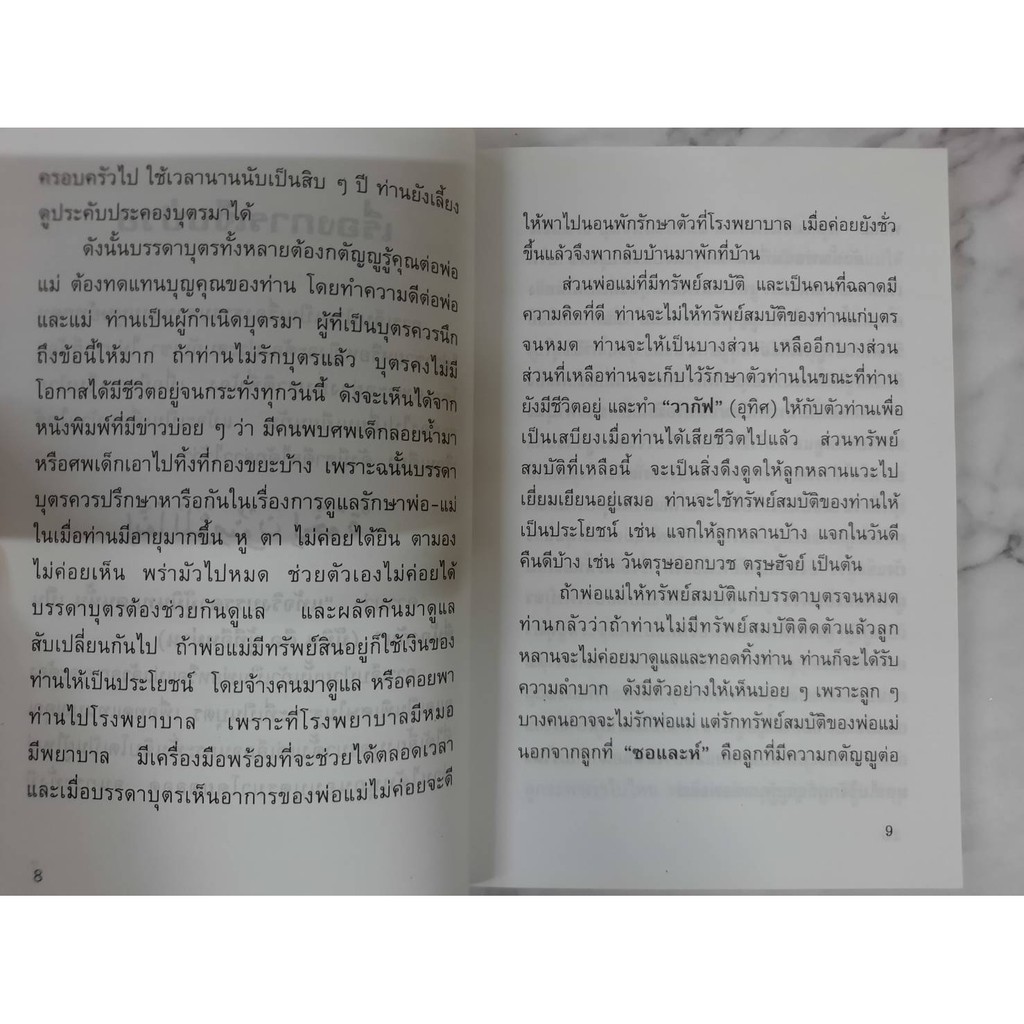 ครอบครัวไป ใช้เวลานานนับเป็นสิบ ๆ ปี ท่านยังเลี้ยง
ดูประคับประคองบุตรมาได้
ดังนั้นบรรดาบุตรทั้งหลายต้องกตัญญูรู้คุณต่อพ่อ
แม่ ต้องทดแทนบุญคุณของท่าน โดยทำความดีต่อพ่อ
และแม่ ท่านเป็นผู้กำเนิดบุตรมา ผู้ที่เป็นบุตรควรนึก
ถึงข้อนี้ให้มาก ถ้าท่านไม่รักบุตรแล้ว บุตรคงไม่มี
โอกาสได้มีชีวิตอยู่จนกระทั่งทุกวันนี้ ดังจะเห็นได้จาก
หนังพิมพ์ที่มีข่าวบ่อย ๆ ว่า มีคนพบศพเด็กลอยน้ำมา
หรือศพเด็กเอาไปทิ้งที่กองขยะบ้าง เพราะฉนั้นบรรดา
บุตรควรปรึกษาหารือกันในเรื่องการดูแลรักษาพ่อ-แม่
ในเมื่อท่านมีอายุมากขึ้น หู ตา ไม่ค่อยได้ยิน ตามอง
ไม่ค่อยเห็น พร่ามัวไปหมด ช่วยตัวเองไม่ค่อยได้
บรรดาบุตรต้องช่วยกันดูแล และผลัดกันมาดูแล
สับเปลี่ยนกันไป ถ้าพ่อแม่มีทรัพย์สินอยู่ก็ใช้เงินของ
ท่านให้เป็นประโยชน์ โดยจ้างคนมาดูแล หรือคอยพา
ท่านไปโรงพยาบาล เพราะที่โรงพยาบาลมีหมอ
มีพยาบาล มีเครื่องมือพร้อมที่จะช่วยได้ตลอดเวลา
และเมื่อบรรดาบุตรเห็นอาการของพ่อแม่ไม่ค่อยจะดี
8
ให้พาไปนอนพักรักษาตัวที่โรงพยาบาล เมื่อค่อยยังชั่ว
ขึ้นแล้วจึงพากลับบ้านมาพักที่บ้าน
ส่วนพ่อแม่ที่มีทรัพย์สมบัติ และเป็นคนที่ฉลาดมี
ความคิดที่ดี ท่านจะไม่ให้ทรัพย์สมบัติของท่านแก่บุตร
จนหมด ท่านจะให้เป็นบางส่วน เหลืออีกบางส่วน
ส่วนที่เหลือท่านจะเก็บไว้รักษาตัวท่านในขณะที่ท่าน
ยังมีชีวิตอยู่ และทำ “วากัฟ” (อุทิศ) ให้กับตัวท่านเพื่อ
เป็นเสบียงเมื่อท่านได้เสียชีวิตไปแล้ว ส่วนทรัพย์
สมบัติที่เหลือนี้ จะเป็นสิ่งดึงดูดให้ลูกหลานแวะไป
เยี่ยมเยียนอยู่เสมอ ท่านจะใช้ทรัพย์สมบัติของท่านให้
เป็นประโยชน์ เช่น แจกให้ลูกหลานบ้าง แจกในวันดี
คืนดีบ้าง เช่น วันตรุษออกบวช ตรุษฮัจย์ เป็นต้น
ถ้าพ่อแม่ให้ทรัพย์สมบัติแก่บรรดาบุตรจนหมด
ท่านกลัวว่าถ้าท่านไม่มีทรัพย์สมบัติติดตัวแล้วลูก
หลานจะไม่ค่อยมาดูแลและทอดทิ้งท่าน ท่านก็จะได้รับ
ความลำบาก ดังมีตัวอย่างให้เห็นบ่อย ๆ เพราะลูก ๆ
บางคนอาจจะไม่รักพ่อแม่ แต่รักทรัพย์สมบัติของพ่อแม่
นอกจากลูกที่ “ซอและห์” คือลูกที่มีความกตัญญูต่อ
9